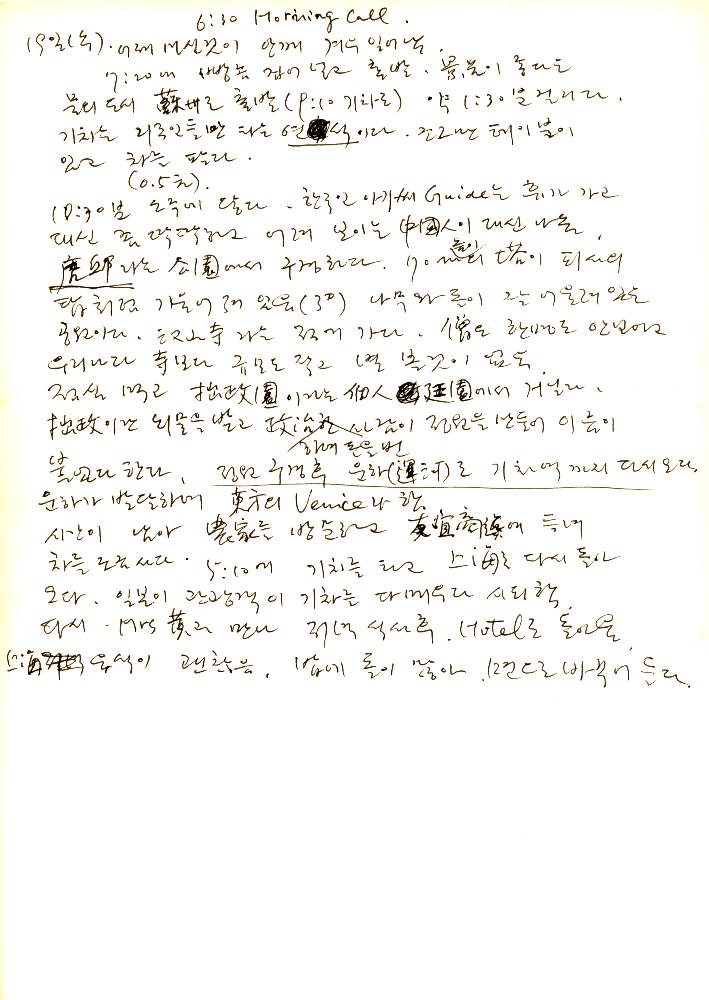 6:30 Morning Call.
19일(수). 어제 마신것이 안깨 겨우 일어남.
7:20에 출발. 좋다는
물의 도시 蘇州로 출발(9:10 기차로) 약 1:30분 걸리다.
기차는 외국인들만 타는 이다. 조그만 테이블이
있고 차를 판다.
(0.5元).
10:30분 소주에 닿다. 한국인 아가씨 Guide는 휴가 가고
대신 좀 딱딱하고 어려 보이는 中國人이 대신 나옴.
라는 公園에서 구경하다. 70 m 높이의 塔이 피사의
탑처럼 기울어져 있음(3°) 나무와 돌이 잘 어울려 있는
공원이다. 寒山寺라는 절에 가다. 僧은 한명도 안보이고
우리나라 寺보다 규모도 작고 별 볼것이 없음.
점심 먹고 拙政園이라는 個人 廷園에서 거닐다.
拙政이란 뇌물을 받고 政治 사람이 정원을 만들어 이름이
하며 돈을 번
붙었다 한다. 정원 구경후 운하(運河)로 기차역까지 다시 오다.
운하가 발달하여 東方의 Venice라 함.
시간이 남아 農家를 방문하고 友宜商店에 들려
차를 사다. 5:10에 기차를 타고 上海로 다시 돌아
오다. 일본이 관광객이 기차를 다 메우다 시피함.
다시 Mrs 黃과 만나 저녁 식사후 Hotel로 돌아옴.
上海 음식이 괜찮음. 밥에 돌이 많아 면으로 바꾸어 든다.